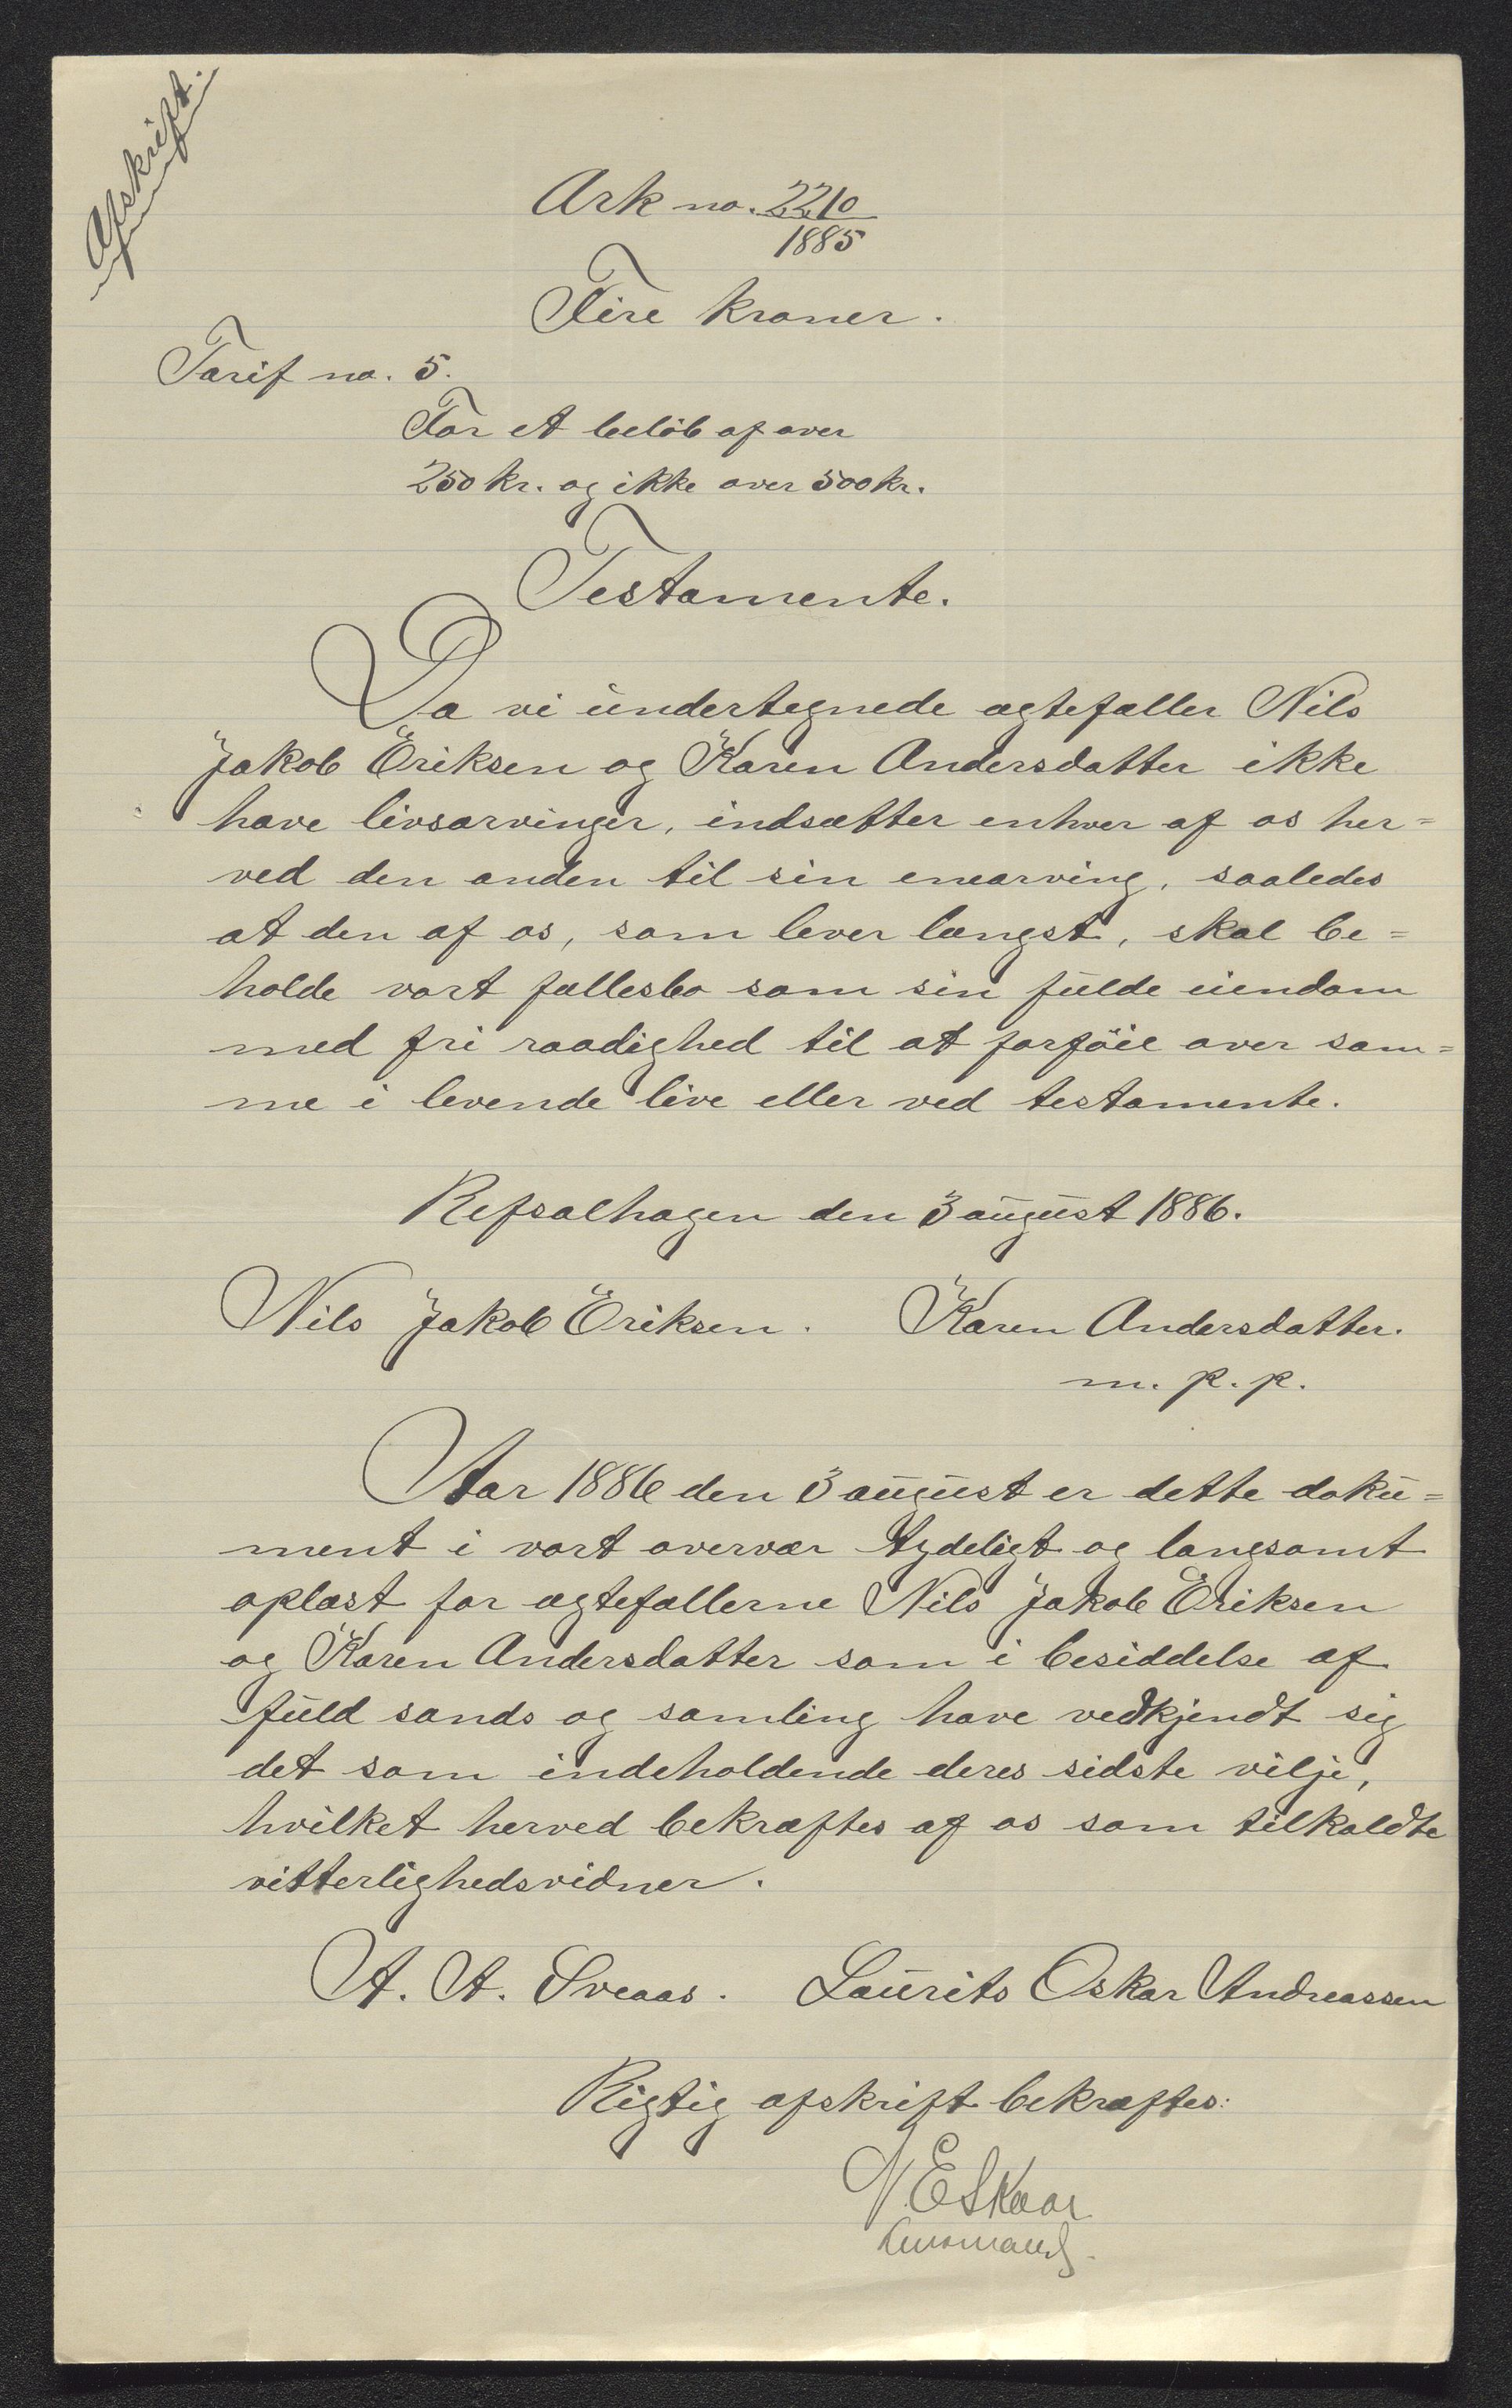 Afskrift.
Ark no. 2210
1885
Fire kroner.
Tarif no. 5.
For et beløb af over
250 kr. og ikke over 500 kr.
Testamente.
Da vi undertegnede ægtefæller Nils
Jakob Eriksen og Karen Andersdatter ikke
have livsarvinger, indsætter enhver af os her=
ved den anden til sin enearving, saaledes
at den af os, som lever længst, skal be=
holde vort fællesbo som sin fulde eiendom
med fri raadighed til at forføie over sam=
me i levende live eller ved testamente.
Refsalhagen den 3 august 1886.
Nils Jakob Eriksen. Karen Andersdatter.
m. p. p.
Aar 1886 den 3 august er dette doku=
ment i vort overvær tydeligt og langsomt
oplæst for ægtefællerne Nils Jakob Eriksen
og Karen Andersdatter som i besiddelse af
fuld sands og samling have vedkjendt sig
det som indeholdende deres sidste vilje,
hvilket herved bekræftes af os som tilkaldte
vitterlighedsvidner.
A. A. Sveaas. Laurits Oskar Andreassen
Rigtig afskrift bekræftes:
N. E. Skaar
lensmand.